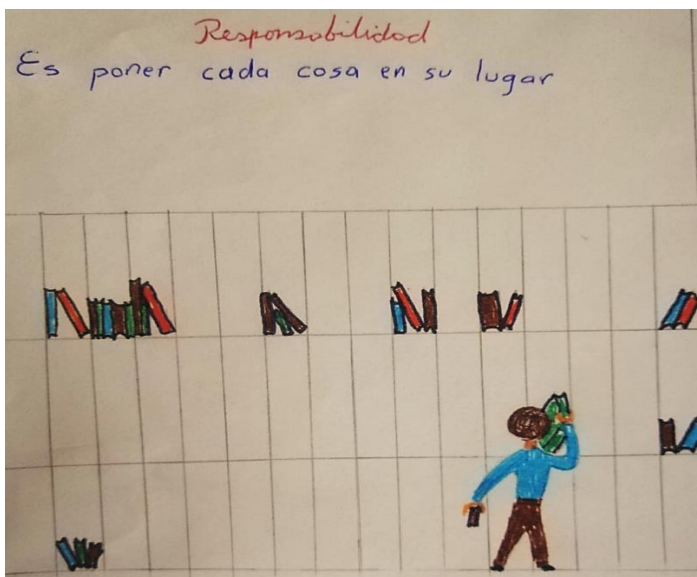 Responsabilidad
Es poner cada cosa en su lugar